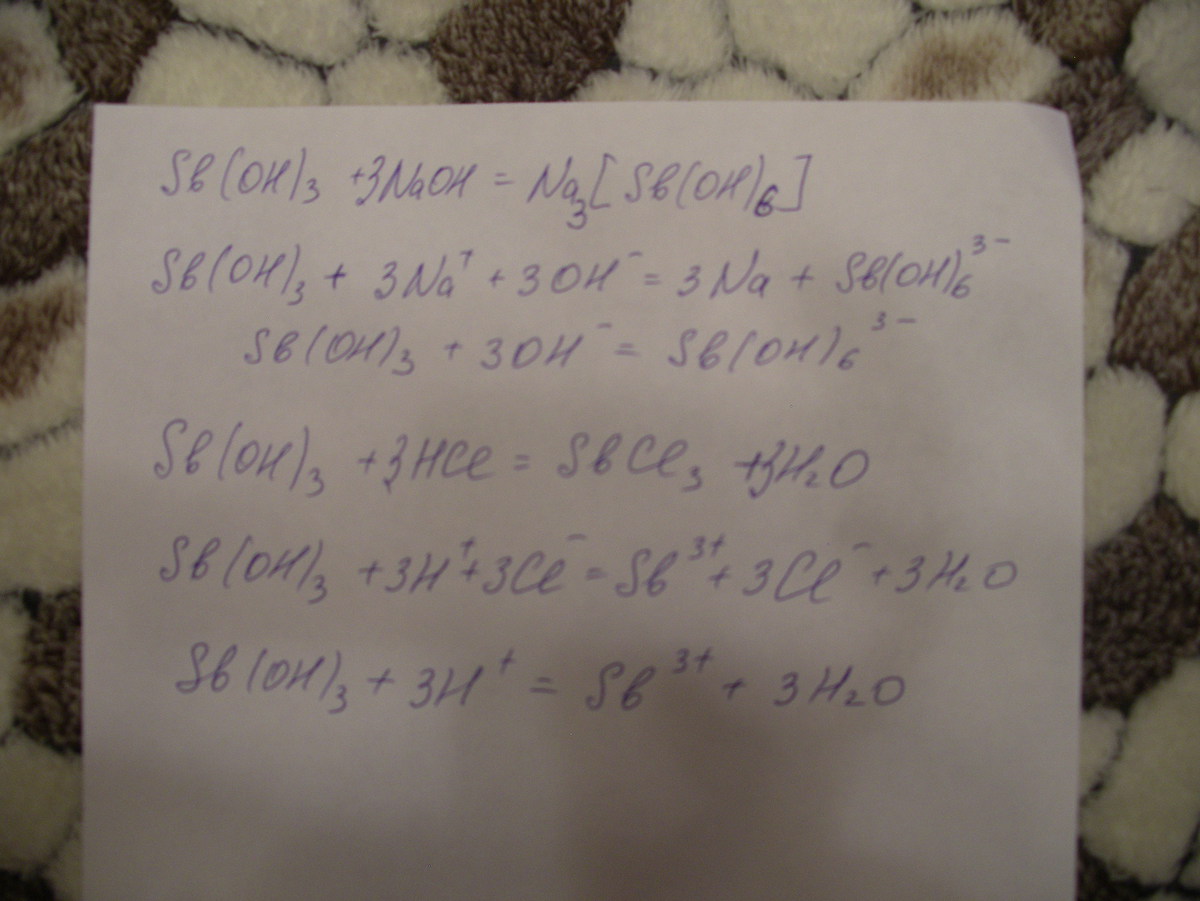 Sb(OH)₃ +3NaOH = Na₃[Sb(OH)₆]
Sb(OH)₃ + 3Na⁺ + 3OH⁻ = 3Na + Sb(OH)₆³⁻
Sb(OH)₃ + 3OH⁻ = Sb(OH)₆³⁻
Sb(OH)₃ +3HCl = SbCl₃ +3H₂O
Sb(OH)₃ +3H⁺+3Cl⁻ = Sb³⁺ + 3Cl⁻ +3H₂O
Sb(OH)₃ + 3H⁺ = Sb³⁺ + 3H₂O